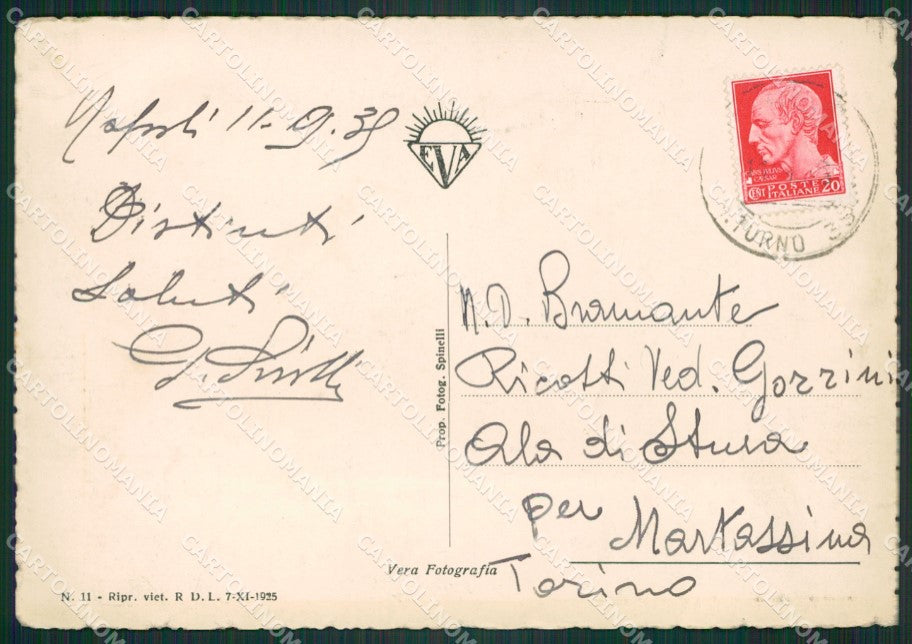 Napoli 11-9.35
Distinti
Saluti
EVA
CAIVS IVLIVS
CAESAR
CENT POSTE ITALIANE 20
TURNO 35
N.D. Bramante
Ricotti Ved. Gorrini
Ala di Stura
per Martassina
Torino
Prop. Fotog. Spinelli
Vera Fotografia
N. 11 - Ripr. viet. R D. L. 7-XI-1925
CARTOLINOMANIA